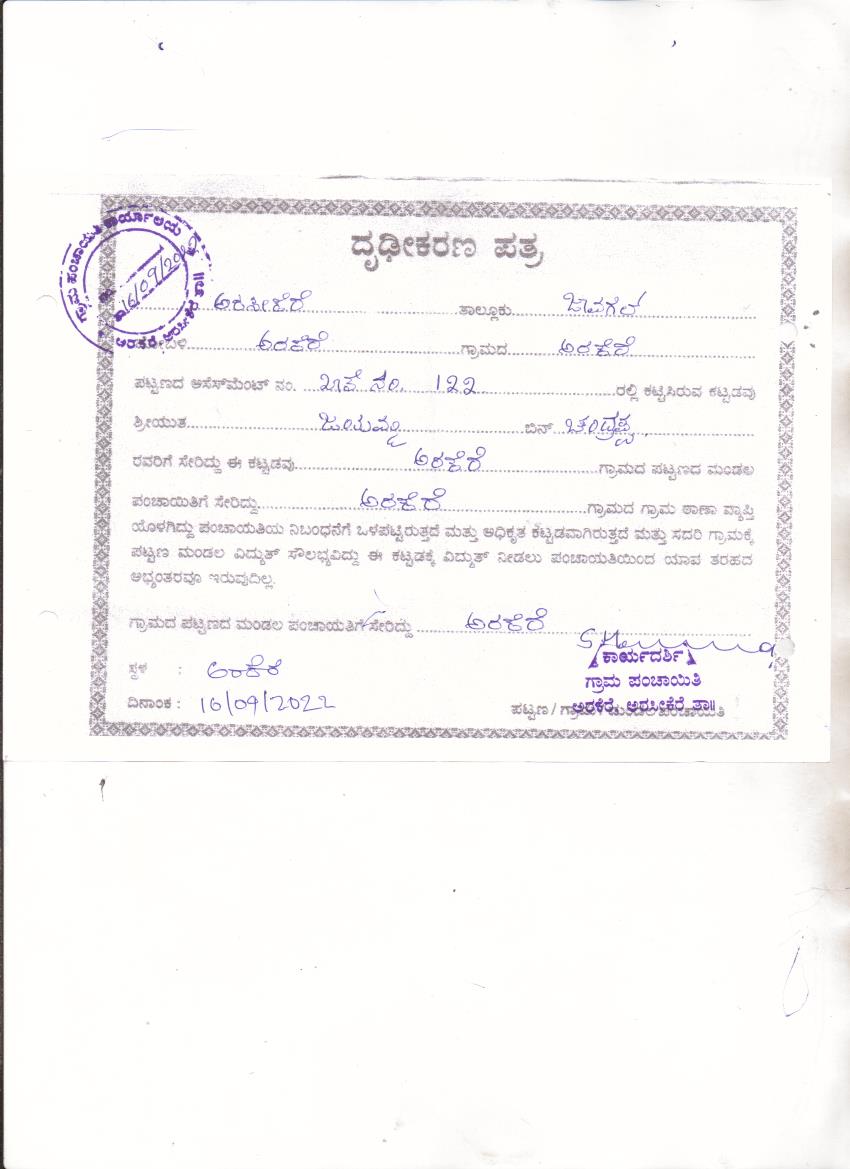 ಗ್ರಾಮ ಪಂಚಾಯಿತಿ ಕಾರ್ಯಾಲಯ
16/09/2022
ಅರಕೆರೆ, ಅರಸೀಕೆರೆ ತಾ॥
ದೃಢೀಕರಣ ಪತ್ರ
ಅರಸೀಕೆರೆ ತಾಲ್ಲೂಕು ಜಾವಗಲ್
ಅರಕೆರೆ ಗ್ರಾಮದ ಅರಕೆರೆ
ಪಟ್ಟಣದ ಆಸೆಸ್‌ಮೆಂಟ್ ನಂ. ಖಾತೆ ನಂ. 122 ರಲ್ಲಿ ಕಟ್ಟಿಸಿರುವ ಕಟ್ಟಡವು
ಶ್ರೀಯುತ ಜಯಮ್ಮ ಬಿನ್ ಚಂದ್ರಪ್ಪ
ರವರಿಗೆ ಸೇರಿದ್ದು ಈ ಕಟ್ಟಡವು ಅರಕೆರೆ ಗ್ರಾಮದ ಪಟ್ಟಣದ ಮಂಡಲ
ಪಂಚಾಯಿತಿಗೆ ಸೇರಿದ್ದು ಅರಕೆರೆ ಗ್ರಾಮದ ಗ್ರಾಮ ಠಾಣಾ ವ್ಯಾಪ್ತಿ
ಯೊಳಗಿದ್ದು ಪಂಚಾಯತಿಯ ನಿಬಂಧನೆಗೆ ಒಳಪಟ್ಟಿರುತ್ತದೆ ಮತ್ತು ಅಧಿಕೃತ ಕಟ್ಟಡವಾಗಿರುತ್ತದೆ ಮತ್ತು ಸದರಿ ಗ್ರಾಮಕ್ಕೆ
ಪಟ್ಟಣ ಮಂಡಲ ವಿದ್ಯುತ್ ಸೌಲಭ್ಯವಿದ್ದು ಈ ಕಟ್ಟಡಕ್ಕೆ ವಿದ್ಯುತ್ ನೀಡಲು ಪಂಚಾಯತಿಯಿಂದ ಯಾವ ತರಹದ
ಅಭ್ಯಂತರವೂ ಇರುವುದಿಲ್ಲ.
ಗ್ರಾಮದ ಪಟ್ಟಣದ ಮಂಡಲ ಪಂಚಾಯತಿಗೆ ಸೇರಿದ್ದು ಅರಕೆರೆ
ಕಾರ್ಯದರ್ಶಿ
ಸ್ಥಳ : ಅರಕೆರೆ
ಗ್ರಾಮ ಪಂಚಾಯಿತಿ
ದಿನಾಂಕ : 16/09/2022
ಪಟ್ಟಣ / ಗ್ರಾಮ / ಮಂಡಲ ಪಂಚಾಯಿತಿ
ಅರಕೆರೆ, ಅರಸೀಕೆರೆ ತಾ॥